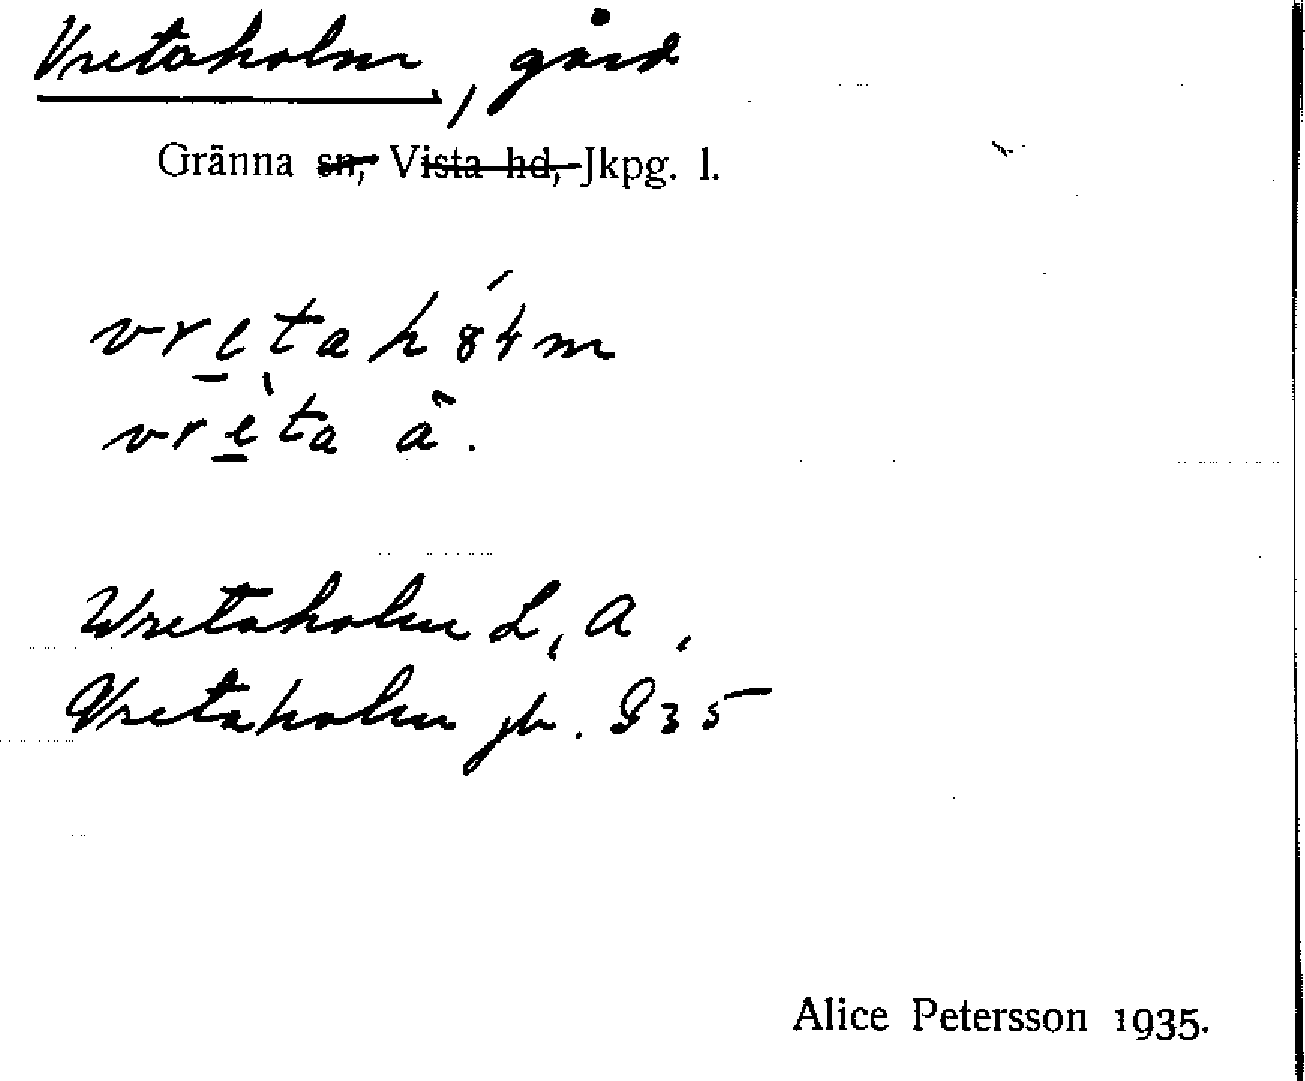 Vretaholm, gård
Gränna sn, Vista hd, Jkpg. l.
vretahólm
vrèta å.
Wretaholm L, A,
Vretaholm jb. 935
Alice Petersson 1935.